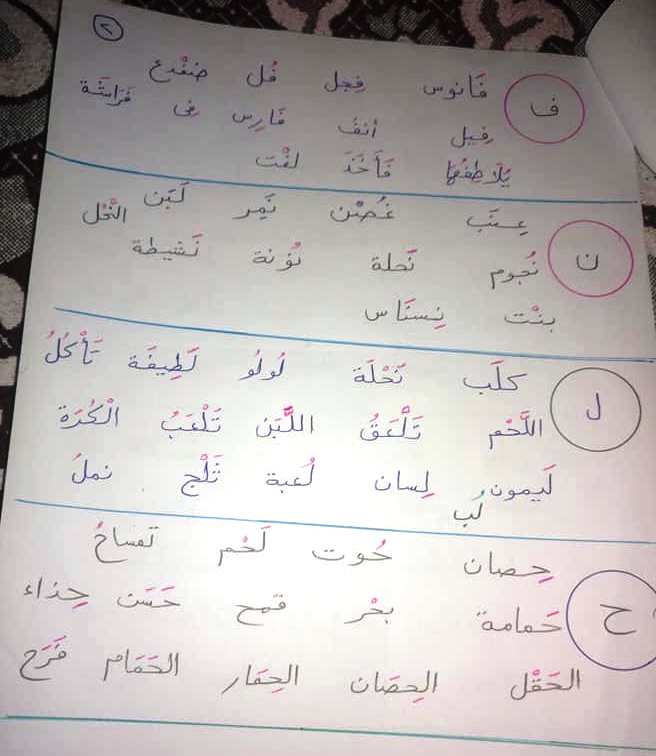 ٢
ف
فَانوس فِجل فُل ضفْدع
فِيل أنْفُ فَارس فِى فَرَاشَة
يُلَاطِفُهَا فَأَخَذَ لفْت
ن
عِنَب غُصْن نَمِر لَبَن النَّحْل
نُجوم نَحلة نُونة نَشيطة
بنْت نِسنَاس
ل
كَلْب نَحْلَة لُولُو لَطِيفَة تَأْكُلُ
اللَّحْم تَلْعَقُ اللَّبَن تَلْعَبُ الْكُرَة
لَيمون لِسان لُعبة ثَلْج نملُ
لُب
ح
حِصان حُوت لَحْم تمساحُ
حَمامة بحْر قمح حَسَن حِذاء
الحَقْل الحِصَان الحِمَار الحَمَام فَرَح